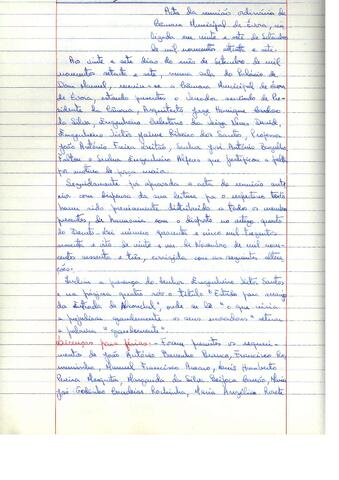 Acta da reunião ordinária da
Câmara Municipal de Évora, rea
lizada em vinte e sete de Setembro
de mil novecentos setenta e sete.
Aos vinte e sete dias do mês de Setembro de mil
novecentos setenta e sete, numa sala do Palácio de
Dom Manuel, reuniu-se a Câmara Municipal de
de Évora, estando presentes o Vereador servindo de Pre-
sidente da Câmara, Arquitecto Jorge Henrique
da Silva, Engenheiro
Engenheiro Victor Jaime Ribeiro dos Santos, Professor
João António Freire, Senhor José António
Faltou o Senhor Engenheiro que justificou a falta
por motivo de força maior.
Seguidamente foi aprovada a acta da reunião ante
rior com dispensa da sua leitura por o respectivo texto
haver sido previamente distribuído a todos os membros
presentes, de harmonia com o disposto no artigo quarto
do Decreto-Lei número quarenta e cinco mil trezentos
sessenta e dois de vinte e um de Novembro de mil nove-
centos sessenta e três, corrigida com as seguintes altera
ções:
a presença do Senhor Engenheiro Victor Santos
e na página quatro sob o título "Estudo para arranjo
da Estrada do", onde se lê "o que viria
a prejudicar grandemente os seus moradores" retirar
a palavra "grandemente".
Licenças para férias:- Foram presentes os requeri-
mentos de João António, Francisco
Manuel Francisco, Luís Humberto
Pereira Mesquita, Margarida da Silva, Maria
José Godinho Bandeira, Maria